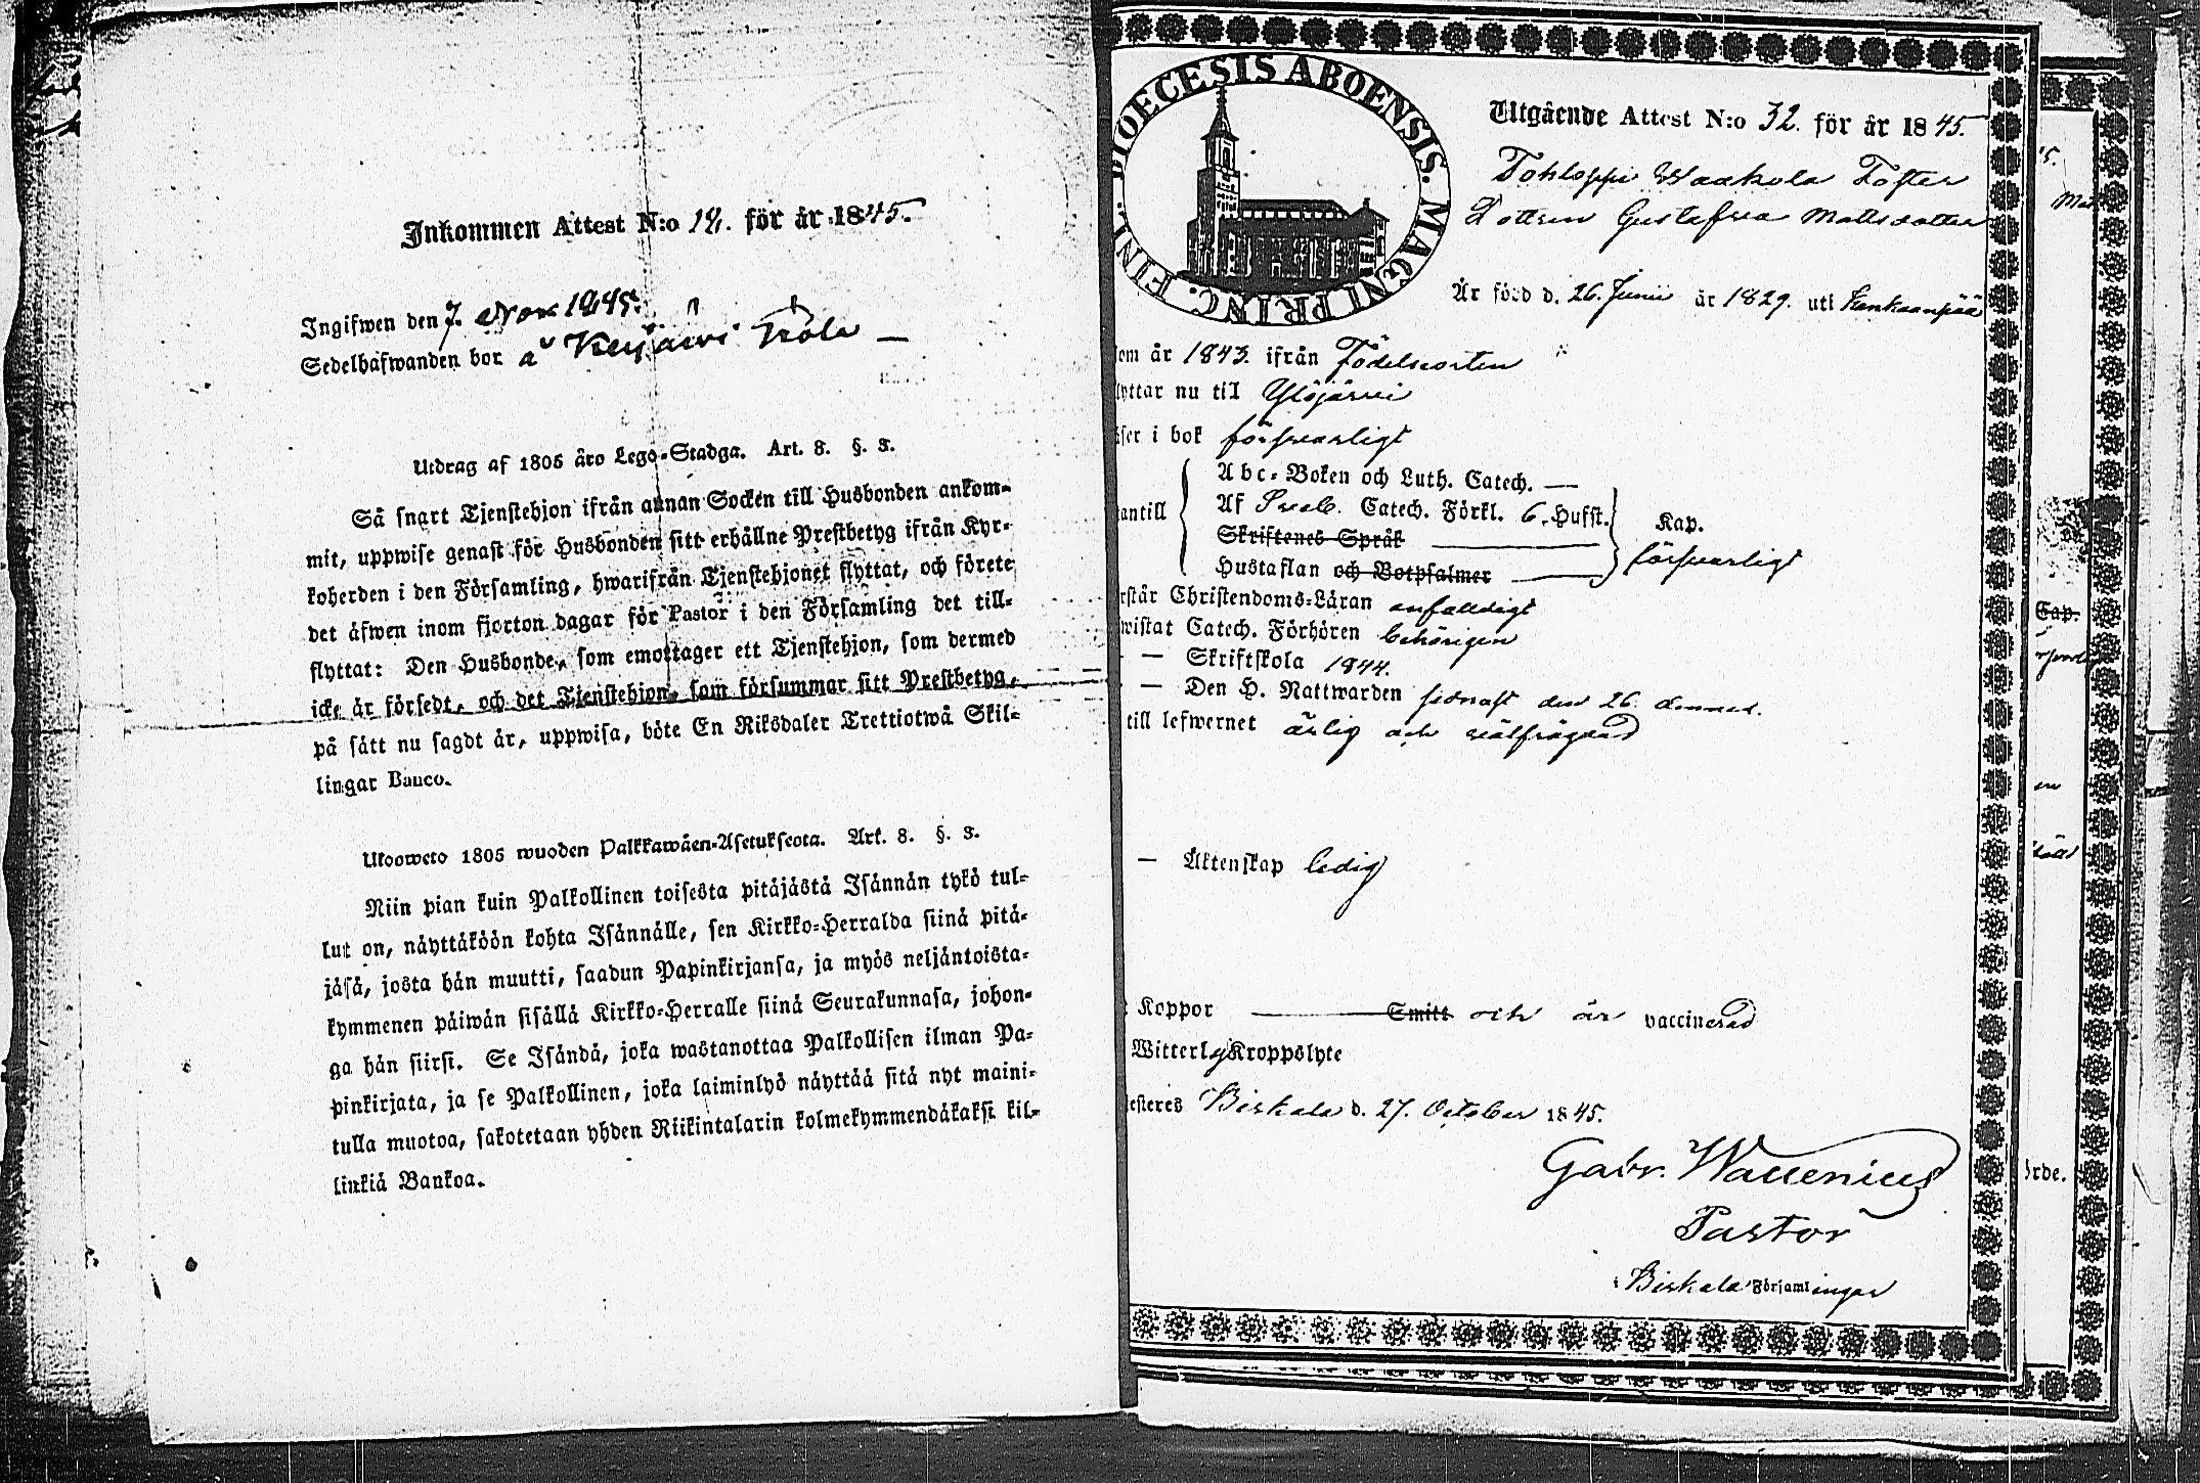 Inkommen Attest N:o 12. för år 1845.
Ingifwen den 7. Nov 1845.
Sedelhafwanden bor å Keijärvi
Utdrag af 1805 åro Lego-Stadga. Art. 8. §. 3.
Så snart Tjenstehjon ifrån annan Socken till Husbonden ankom-
mit, uppwise genast för Husbonden sitt erhållne Prestbetyg ifrån Kyr-
koherden i den Församling, hwarifrån Tjenstehjonet flyttat, och förete
det åfwen inom fjorton dagar för Pastor i den Församling det till-
flyttat: Den Husbonde, som emottager ett Tjenstehjon, som dermed
icke år försedt, och det Tjenstehjon, som försummar sitt Prestbetyg,
på sått nu sagdt år, uppwisa, böte En Riksdaler Trettiotwå Skil-
lingar Banco.
Ulosweto 1805 wuoden Palkkawåen-Asetuksesta. Art. 8. §. 3.
Niin pian kuin Palkollinen toisesta pitåjåstå Isånnån tykö tul-
lut on, nåyttåköön kohta Isånnålle, sen Kirkko-Herralda siinå pitå-
jåså, josta hån muutti, saadun Papinkirjansa, ja myös neljåntoista-
kymmenen påiwån sisållå Kirkko-Herralle siinå Seurakunnasa, johon-
ga hån siirsi. Se Isåndå, joka wastanottaa Palkollisen ilman Pa-
pinkirjata, ja se Palkollinen, joka laiminlyö nåyttåå sitå nyt maini-
tulla muotoa, sakotetaan yhden Riikintalarin kolmekymmendåkaksi kil-
linkiå Bankoa.
DIOECESIS ABOENSIS. MAGNI PRINC. FINL.
Utgående Attest N:o 32. för år 1845.
Tohloppi Waakola Foster
Dottren Gustafva Mattsdotter
År född d. 26. Junii år 1829. uti Kankaanpää
om år 1843. ifrån Födelseorten
lyttar nu til Ylöjärvi
ser i bok försvarligt
Abc-Boken och Luth. Catech. —
antill Af Sveb. Catech. Förkl. 6. Hufst. Kap.
Skriftenes Språk
Hustaflan och Botpsalmer försvarligt
rstår Christendoms-Låran enfaldigt
wistat Catech. Förhören behörigen
— Skriftskola 1844.
— Den H. Nattwarden sednast den 26. dennes.
till lefwernet ärlig och välfrägdad
— Åktenskap ledig
Koppor Smitt och är vaccinerad
Witterl. Kroppslyte
esteres Birkala d. 27. October 1845.
Gabr. Wallenius
Pastor
i Birkala Församlingar
Cap.